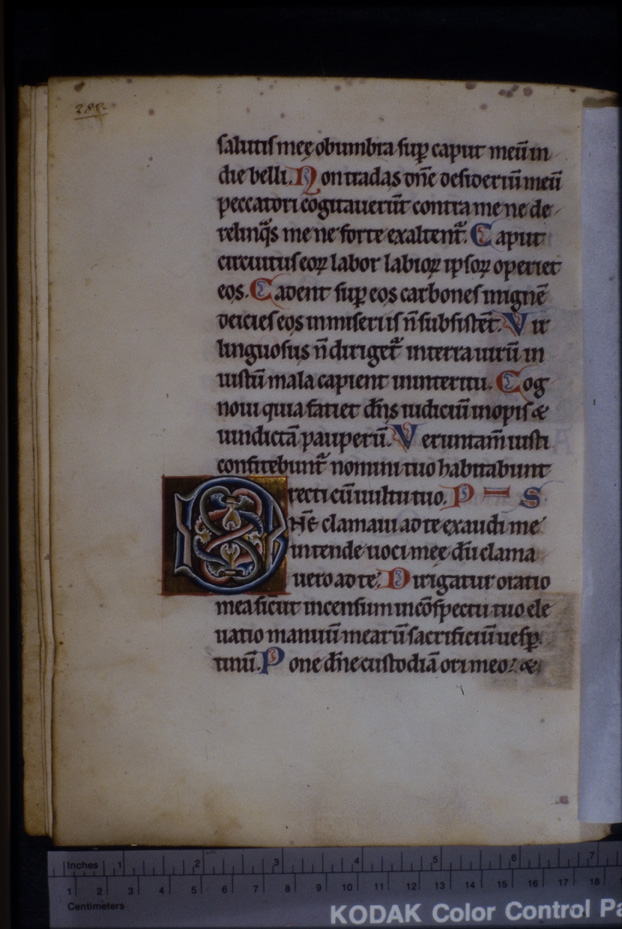 salutis meę obumbra sup̱ caput meū in
die belli. Non tradas dn̄e desideriū meū
peccatori cogitauerūt contra me ne de
relinq̄s me ne forte exaltent̄. Caput
circuitus eoꝝ labor labioꝝ ipsoꝝ operiet
eos. Cadent sup̱ eos carbones in ignē
deicies eos in miseriis n̄ subsistēt. Vir
linguosus n̄ diriget̄ in terra uirū in
iustū mala capient in interitu. Cog
noui quia faciet dn̄s iudiciū inopis &
uindictā pauperū. Veruntam̄ iusti
confitebunt̄ nomini tuo habitabunt
recti cū uultu tuo. P S
DNĒ clamaui ad te exaudi me
intende uoci meę dū clama
uero ad te; Dirigatur oratio
mea sicut incensum in cōspectu tuo ele
uatio manuū mearū sacrificiū uesp̱
tinū. Pone dn̄e custodiā ori meo: &
Inches 1 2 3 4 5 6 7
1 2 3 4 5 6 7 8 9 10 11 12 13 14 15 16 17 18
Centimeters
KODAK Color Control Pa